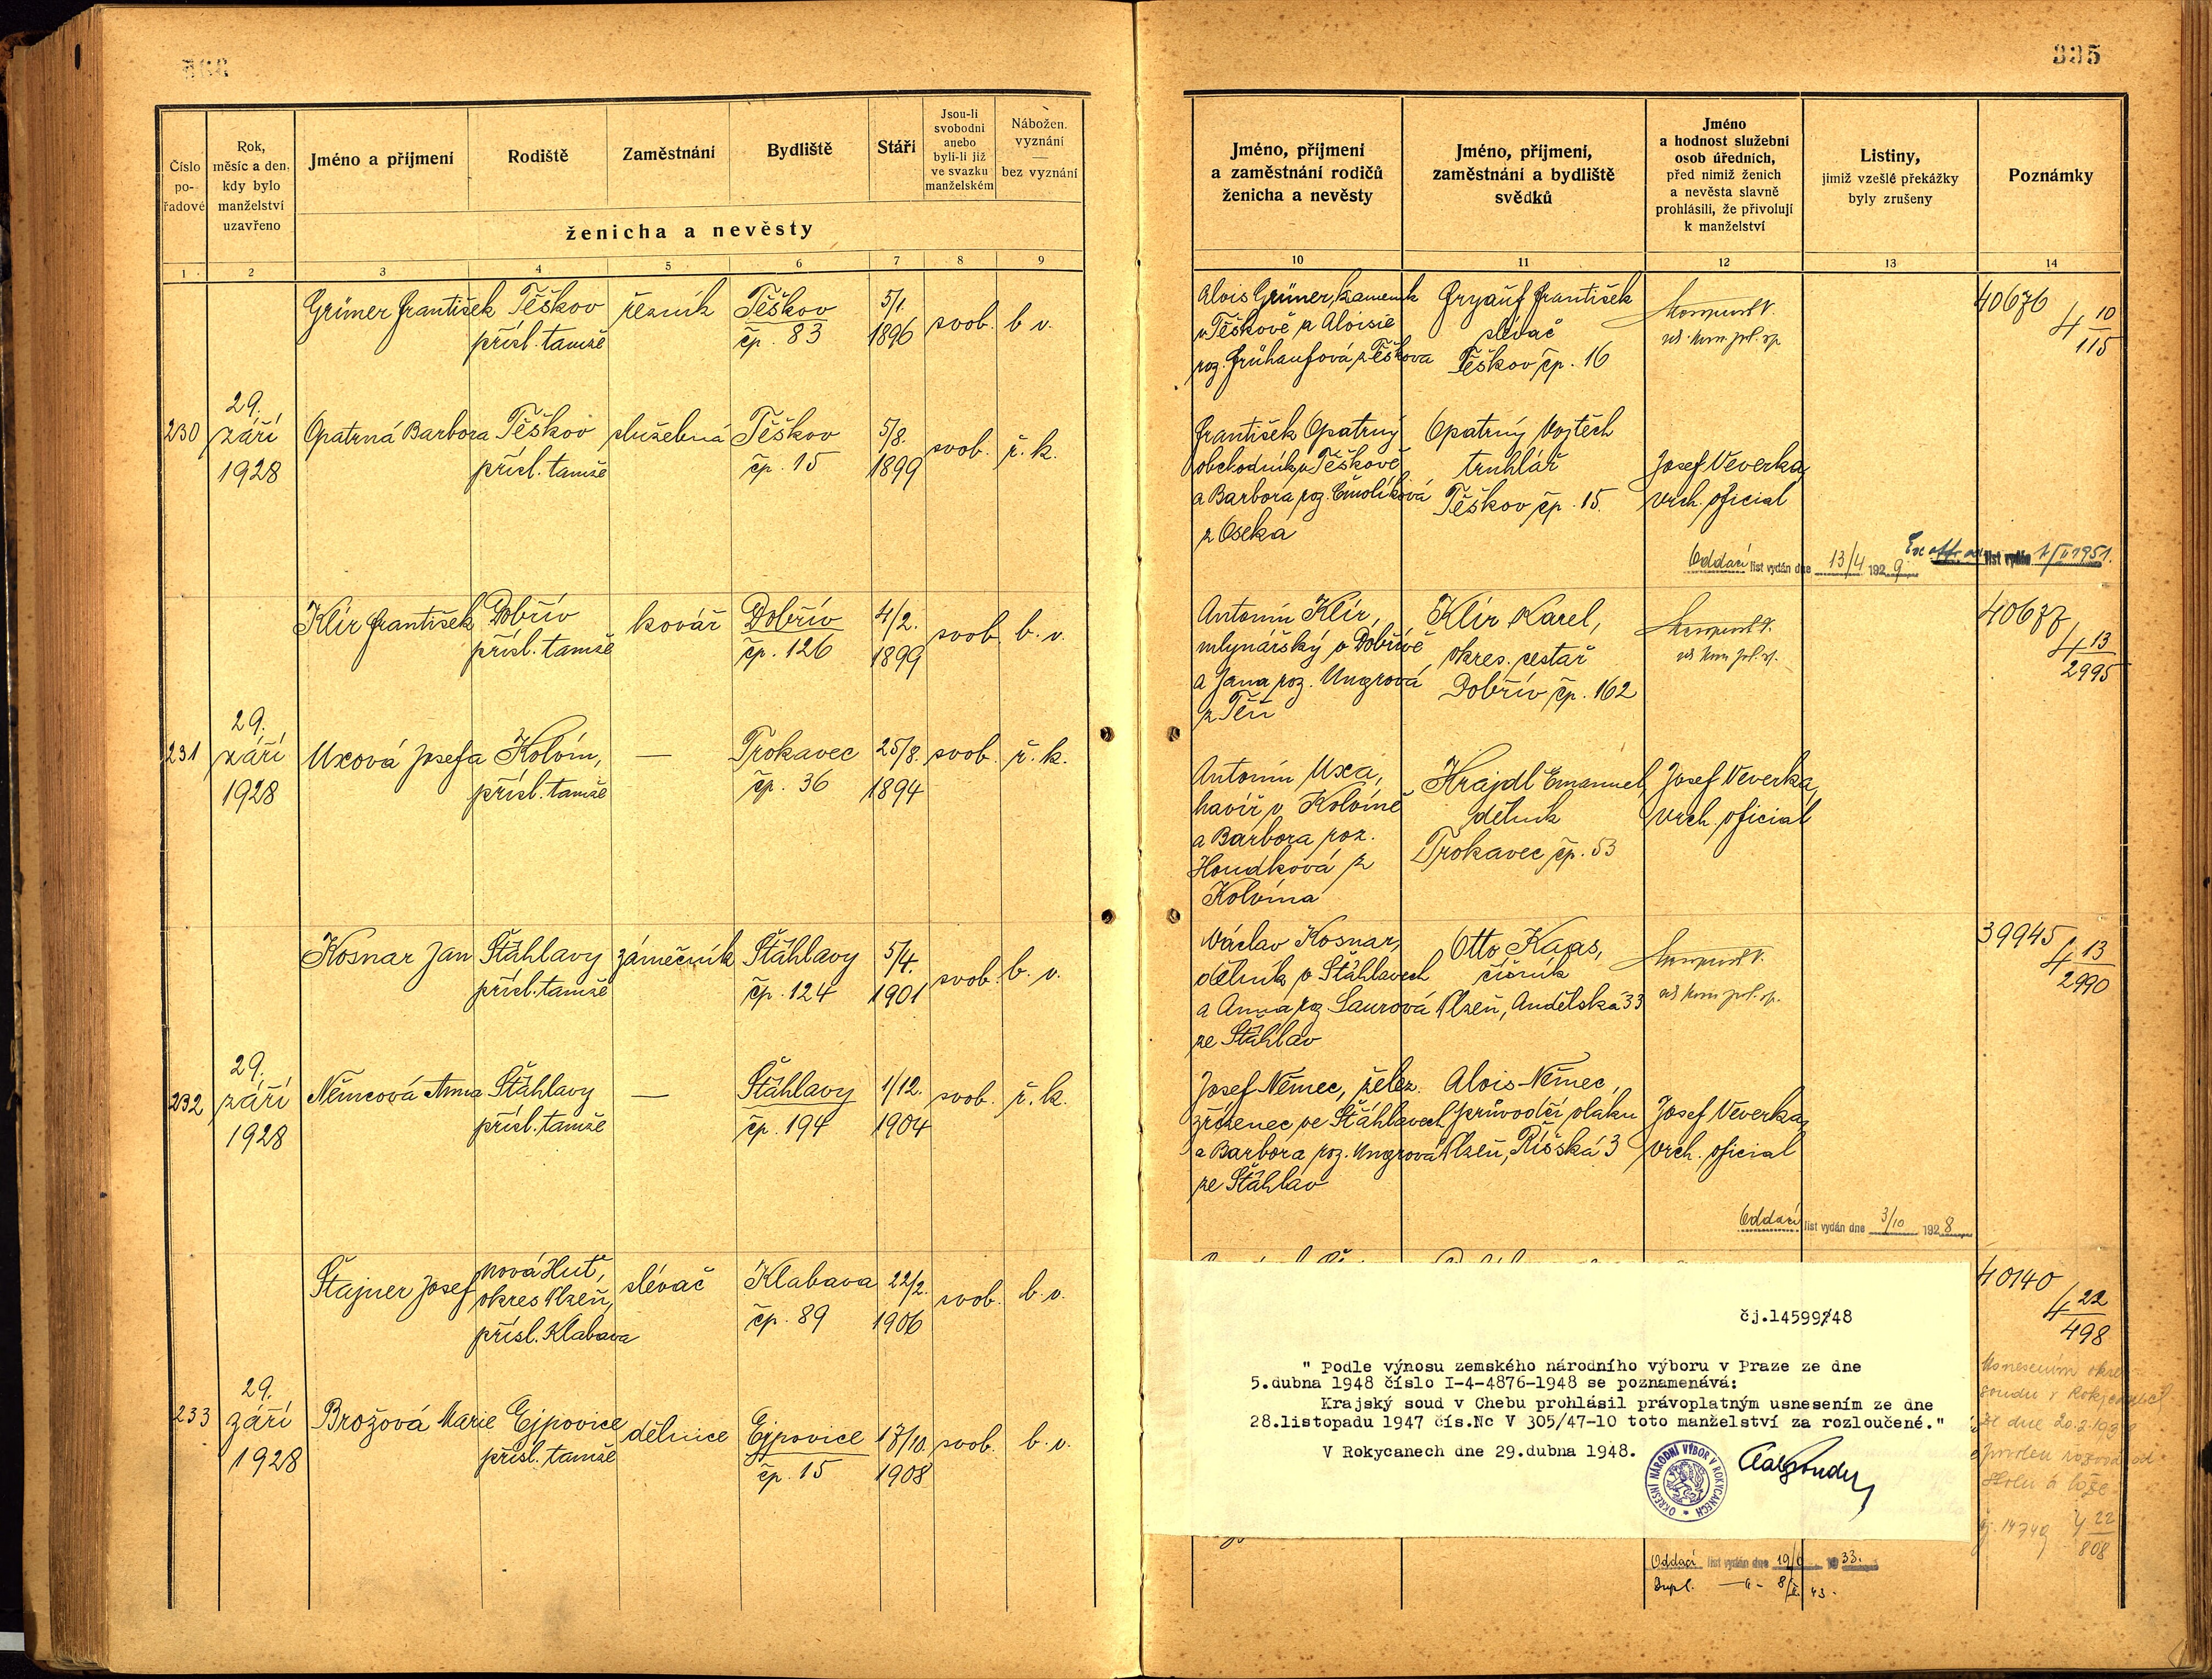 335
Číslo po- řadové
Rok, měsíc a den, kdy bylo manželství uzavřeno
Jméno a příjmení
Rodiště
Zaměstnání
Bydliště
Stáří
Jsou-li svobodni anebo byli-li již ve svazku manželském
Nábožen. vyznání — bez vyznání
ženicha a nevěsty
1 2 3 4 5 6 7 8 9
Grüner František Těškov řezník Těškov 5/1. svob. b. v.
přísl. tamže čp. 83 1896
29.
230 září Opatrná Barbora Těškov služebná Těškov 5/8. svob. ř. k.
1928 přísl. tamže čp. 15 1899
Klír František Dobřív kovář Dobřív 4/2. svob. b. v.
přísl. tamže čp. 126 1899
29.
231 září Uxová Josefa Kolvín, — Trokavec 25/8. svob. ř. k.
1928 přísl. tamže čp. 36 1894
Kosnar Jan Šťáhlavy zámečník Šťáhlavy 5/4. svob. b. v.
přísl. tamže čp. 124 1901
29.
232 září Němcová Anna Šťáhlavy — Šťáhlavy 1/12. svob. ř. k.
1928 přísl. tamže čp. 194 1904
Štajner Josef Nová Huť, slévač Klabava 22/2. svob. b. v.
okres Plzeň, čp. 89 1906
přísl. Klabava
29.
233 září Brožová Marie Ejpovice dělnice Ejpovice 17/10. svob. b. v.
1928 přísl. tamže čp. 15 1908
Jméno, příjmení a zaměstnání rodičů ženicha a nevěsty
Jméno, příjmení, zaměstnání a bydliště svědků
Jméno a hodnost služební osob úředních, před nimiž ženich a nevěsta slavně prohlásili, že přivolují k manželství
Listiny, jimiž vzešlé překážky byly zrušeny
Poznámky
10 11 12 13 14
Alois Grüner, kameník
v Těškově a Aloisie
roz. Frühaufová z Těškova
František
slevač
Těškov čp. 16
40676
4 10
115
František Opatrný
obchodník v Těškově
a Barbora roz. Čmolíková
z Oseka
Opatrný Vojtěch
truhlář
Těškov čp. 15.
Josef Veverka,
vrch. oficial
Oddací list vydán dne 13/4 1929
list vydán 1951.
Antonín Klír,
mlynářský v Dobřívě
a Jana roz. Ungrová
z Těň
Klír Karel,
okres. cestář
Dobřív čp. 162
40677
4 13
2995
Antonín Uxa,
havíř v Kolvíně
a Barbora roz.
Houdková z
Kolvína
Krajdl Emanuel,
dělník
Trokavec čp. 53
Josef Veverka,
vrch. oficial
Václav Kosnar,
dělník v Šťáhlavech
a Anna roz. Laurová
ze Šťáhlav
Otto Kaas,
číšník
Plzeň, Andělská 33
39945
4 13
2990
Josef Němec, želez.
zřízenec ve Šťáhlavech
a Barbora roz. Ungrová
ze Šťáhlav
Alois Němec,
průvodčí vlaku
Plzeň, Říšská 3
Josef Veverka,
vrch. oficial
Oddací list vydán dne 3/10 1928
40140
4 22
498
čj.14599/48
" Podle výnosu zemského národního výboru v Praze ze dne
5.dubna 1948 číslo I-4-4876-1948 se poznamenává:
Krajský soud v Chebu prohlásil právoplatným usnesením ze dne
28.listopadu 1947 čís.Nc V 305/47-10 toto manželství za rozloučené."
V Rokycanech dne 29.dubna 1948.
OKRESNÍ NÁRODNÍ VÝBOR V ROKYCANECH
Usnesením okres.
soudu v Rokycanech
ze dne 20.3.193
povolen rozvod od
stolu a lože.
čj. 14749 4 22
808
Oddací list vydán dne 1933.
Dupl. 43.